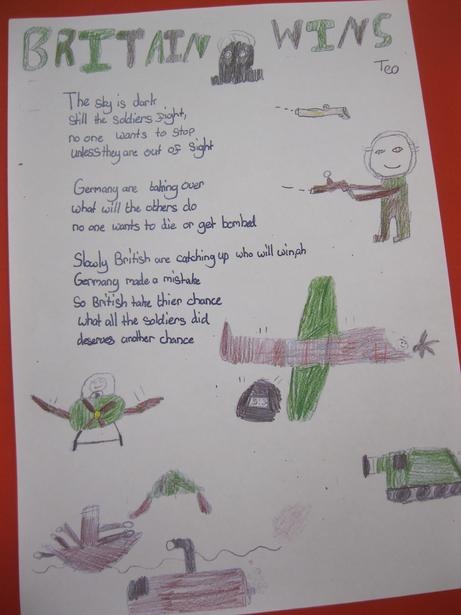 BRITAIN WINS
Teo
The sky is dark
still the soldiers fight,
no one wants to stop
unless they are out of sight
Germany are taking over
what will the others do
no one wants to die or get bombed
Slowly British are catching up who will win,oh
Germany made a mistake
So British take thier chance
what all the soldiers did
deserves another chance